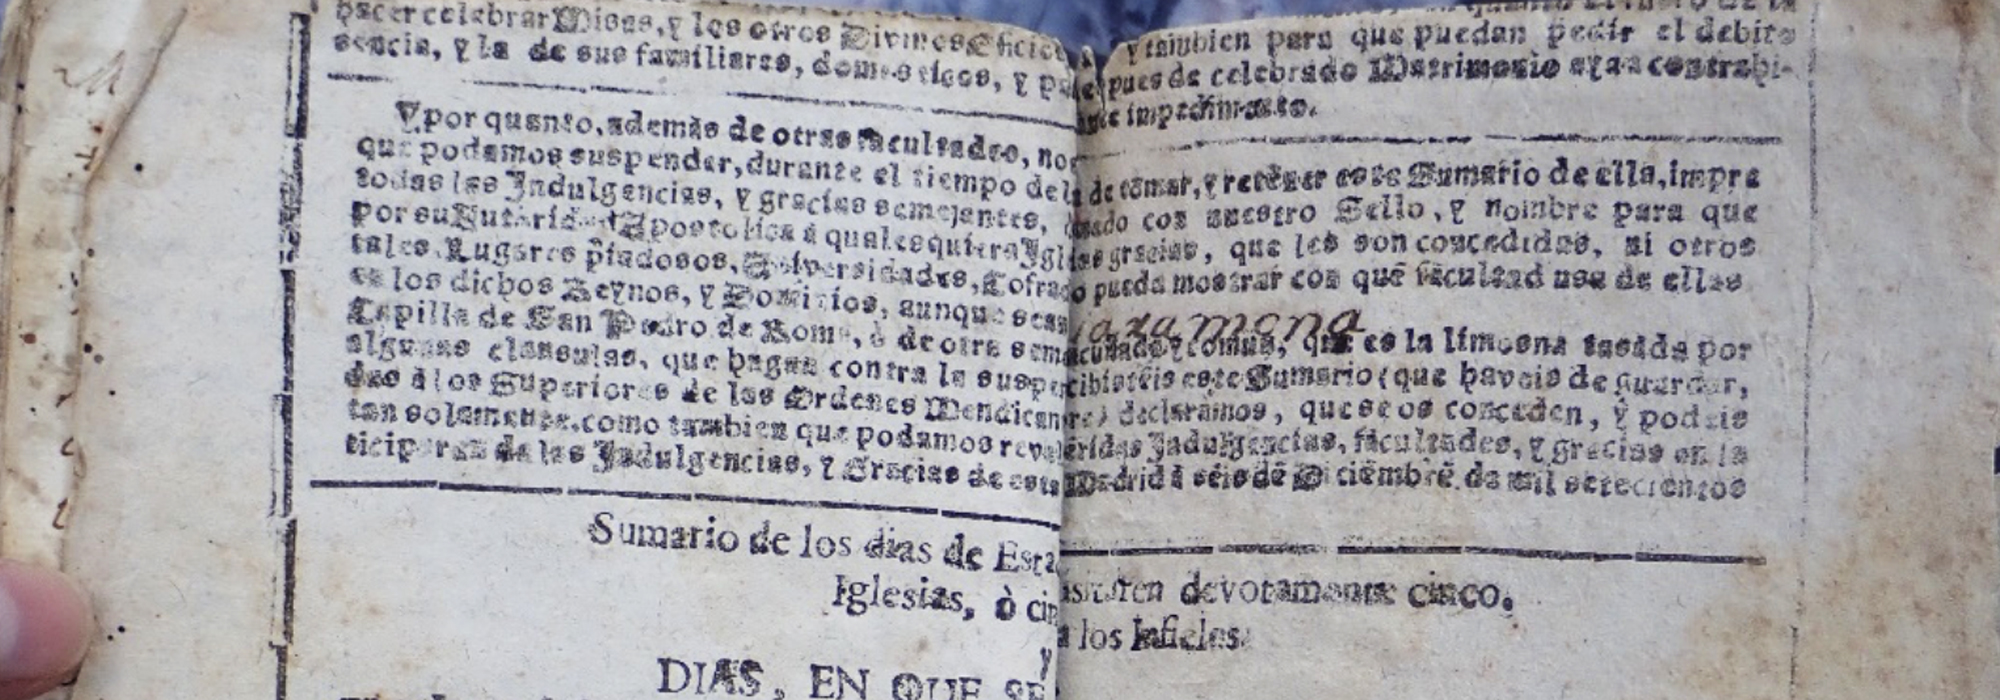 hacer celebrar Misas, y los otros Divinos Oficios
sencia, y la de sus familiares, domesticos, y
Y por quanto, ademàs de otras facultades, nos
que podamos suspender, durante el tiempo de la
todas las Indulgencias, y gracias semejantes,
por su Autoridad Apostolica à qualesquiera Igl
tales, Lugares piadosos, Universidades, Cofrad
en los dichos Reynos, y Dominios, aunque sean
Capilla de San Pedro de Roma, ò de otra sem
algunas clausulas, que hagan contra la suspe
das à los Superiores de las Ordenes Mendican
tan solamente, como tambien que podamos reval
ticiparen de las Indulgencias, y Gracias de esta
Sumario de los dias de Esta
Iglesias, ò cin
DIAS, EN QUE SE
y tambien para que puedan pedir el debito
pues de celebrado Matrimonio aya contrahi-
impedimento.
de tomar, y retener este Sumario de ella, impre
sado con nuestro Sello, y nombre para que
las gracias, que les son concedidas, ni otros
pueda mostrar con què facultad usa de ellas
comun, que es la limosna tasada por
cibisteis este Sumario (que haveis de guardar,
declaramos, que se os conceden, y podeis
feridas Indulgencias, facultades, y gracias en la
Madrid à seis de Diciembre de mil setecientos
visitaren devotamente cinco.
los Infieles.